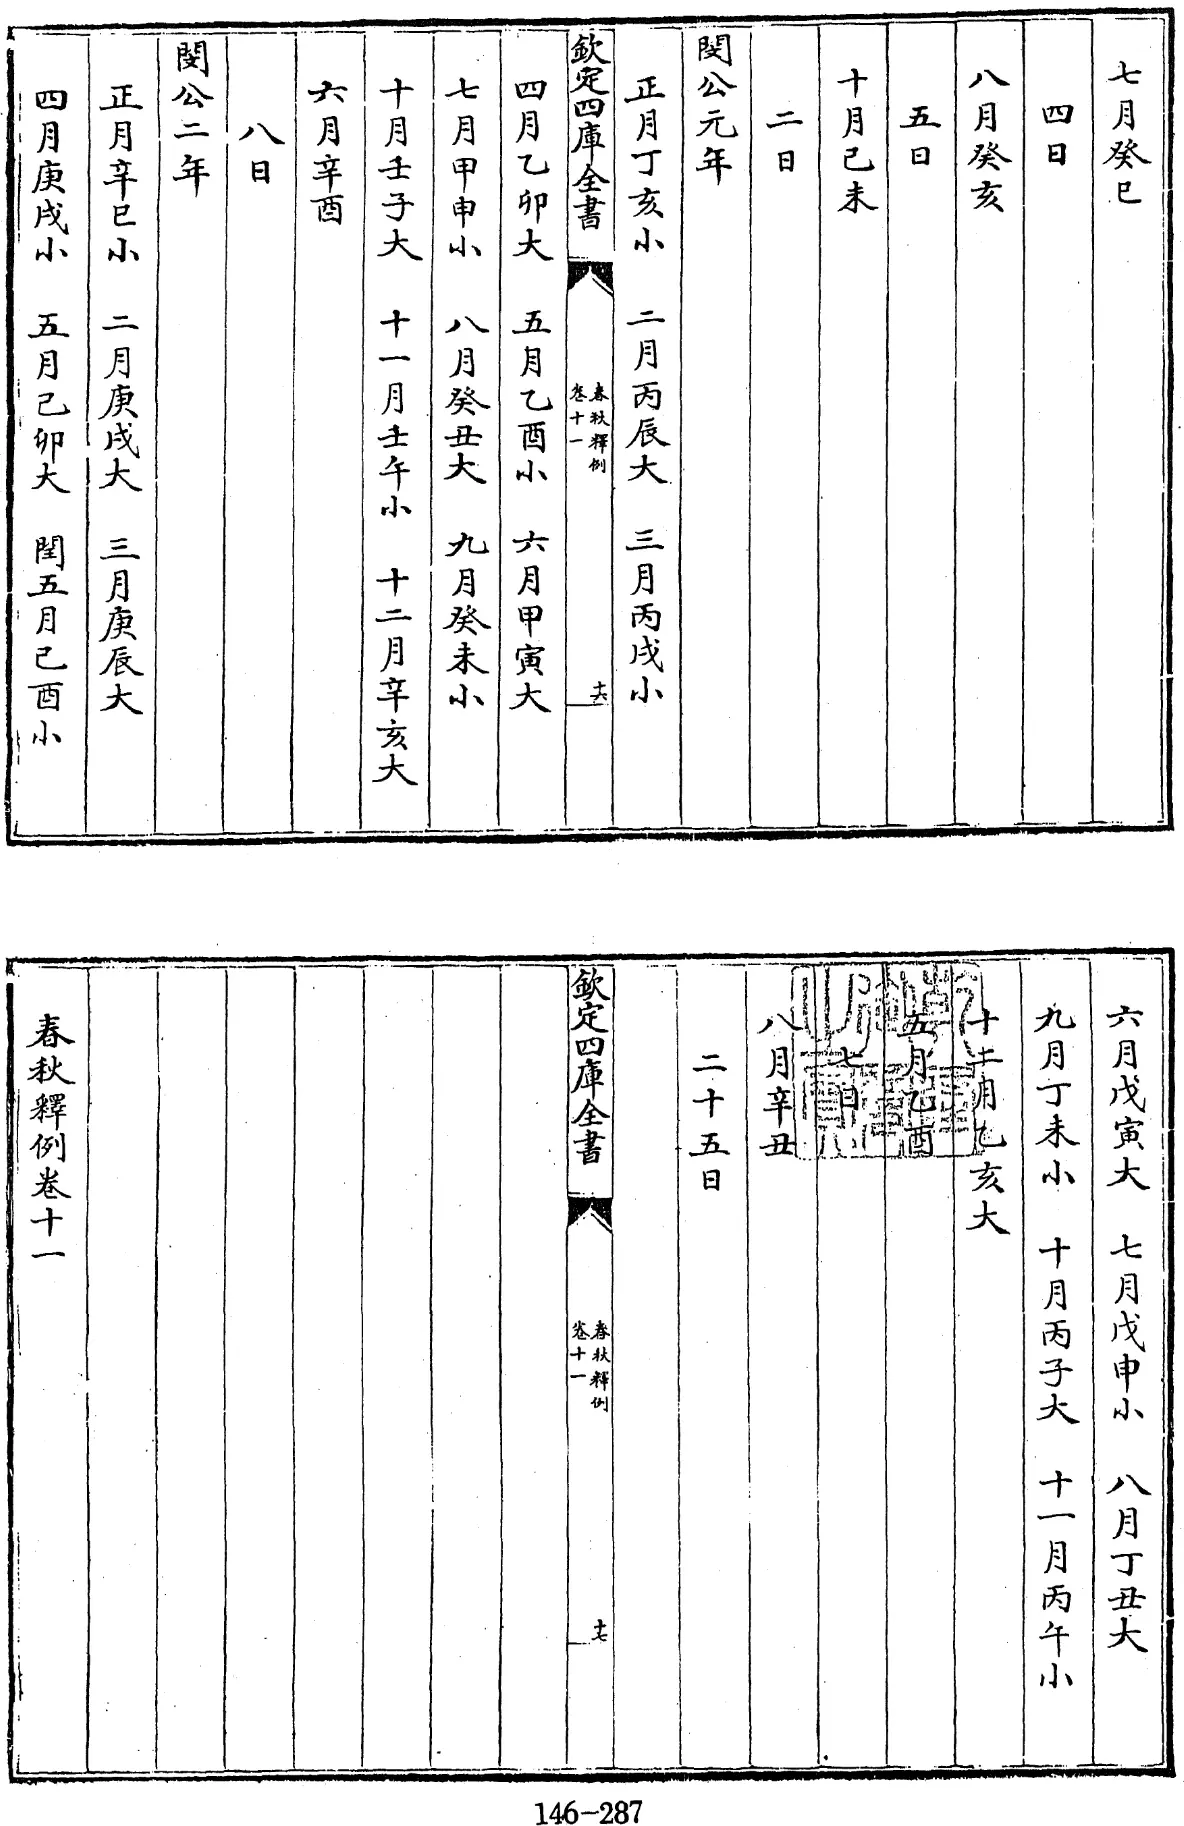 七月癸巳
四日
八月癸亥
五日
十月己未
二日
閔公元年
正月丁亥小 二月丙辰大 三月丙戌小
欽定四庫全書 春秋釋例 卷十一 十六
四月乙卯大 五月乙酉小 六月甲寅大
七月甲申小 八月癸丑大 九月癸未小
十月壬子大 十一月壬午小 十二月辛亥大
六月辛酉
八日
閔公二年
正月辛巳小 二月庚戌大 三月庚辰大
四月庚戌小 五月己卯大 閏五月己酉小
六月戊寅大 七月戊申小 八月丁丑大
九月丁未小 十月丙子大 十一月丙午小
十二月乙亥大
五月乙酉
七日
八月辛丑
二十五日
欽定四庫全書 春秋釋例 卷十一 十七
春秋釋例卷十一
146-287